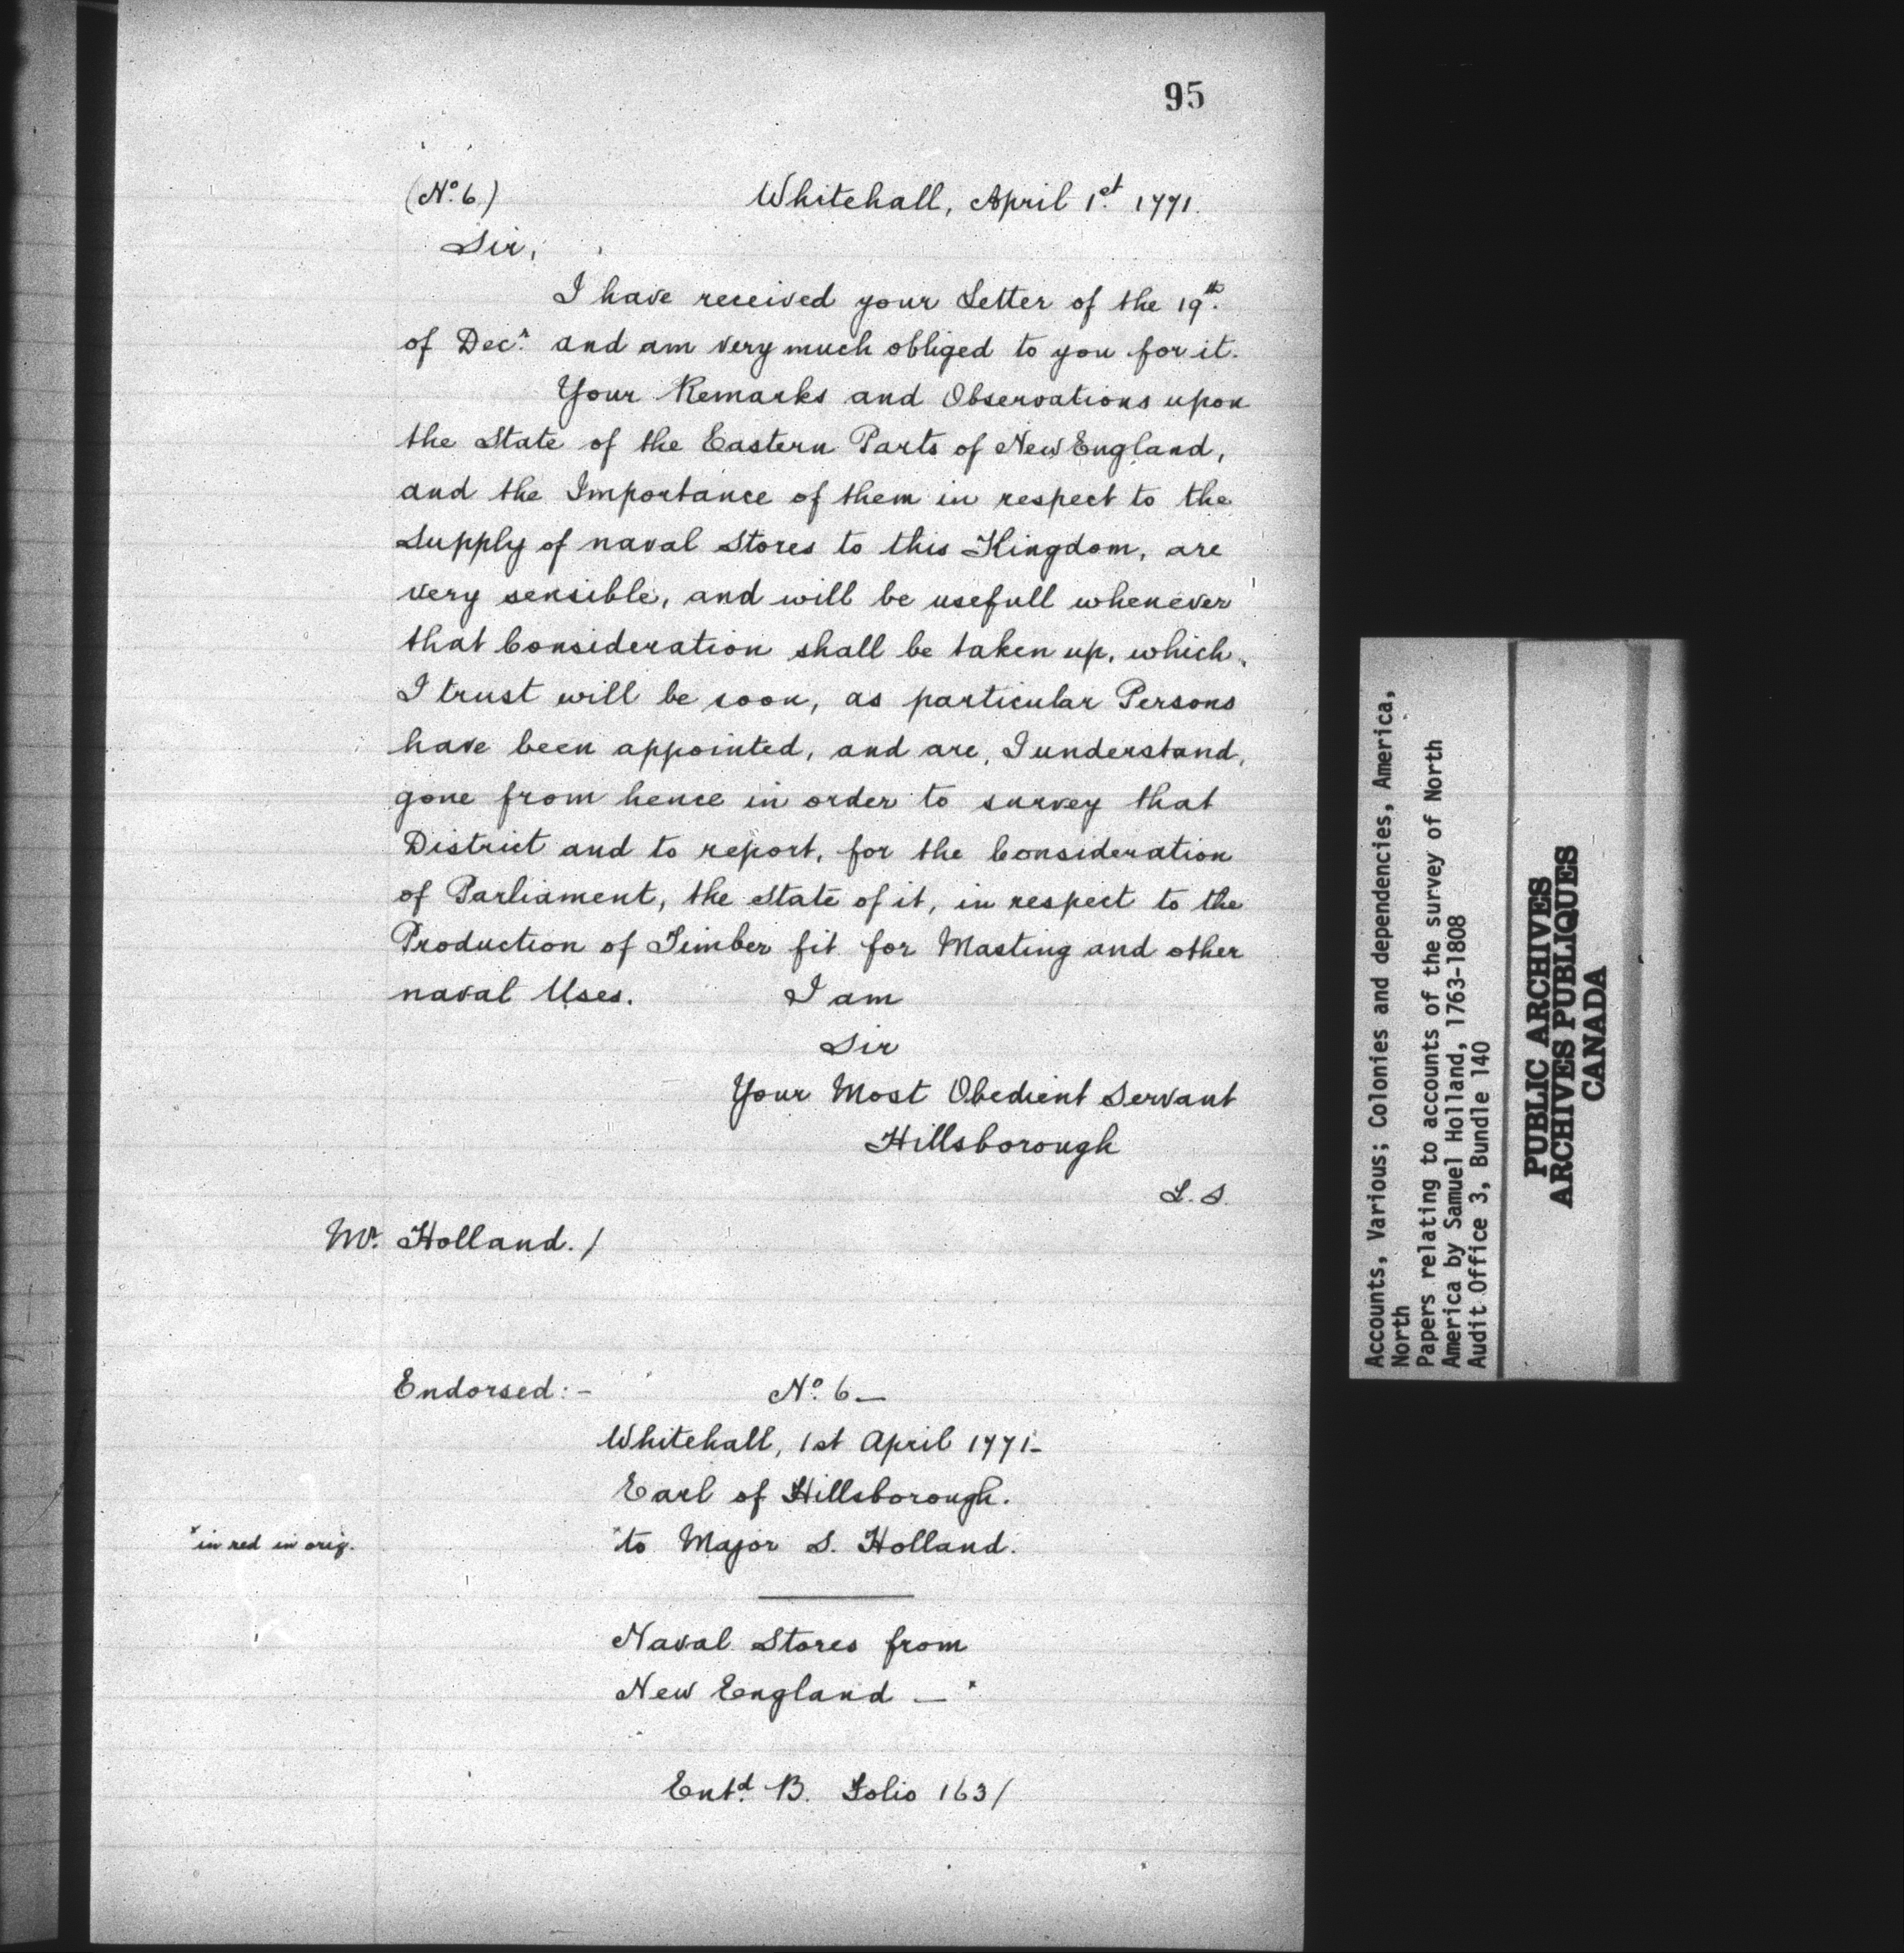 95
(No. 6.) Whitehall, April 1st. 1771.
Sir,
I have received your Letter of the 19th.
of Decr. and am very much obliged to you for it.
Your Remarks and Observations upon
the State of the Eastern Parts of New England,
and the Importance of them in respect to the
Supply of naval Stores to this Kingdom, are
very sensible, and will be usefull whenever
that Consideration shall be taken up, which,
I trust will be soon, as particular Persons
have been appointed, and are, I understand,
gone from hence in order to survey that
District and to report, for the Consideration
of Parliament, the State of it, in respect to the
Production of Timber fit for Masting and other
naval Uses. I am
Sir
Your Most Obedient Servant
Hillsborough
L. S.
Mr. Holland. /
Endorsed: - No. 6 —
Whitehall, 1st April 1771 -
Earl of Hillsborough.
* in red in orig. * to Major S. Holland.
Naval Stores from
New England — *
Entd. B. Folio 163 /
Accounts, Various; Colonies and dependencies, America,
North
Papers relating to accounts of the survey of North
America by Samuel Holland, 1763-1808
Audit Office 3, Bundle 140
PUBLIC ARCHIVES
ARCHIVES PUBLIQUES
CANADA